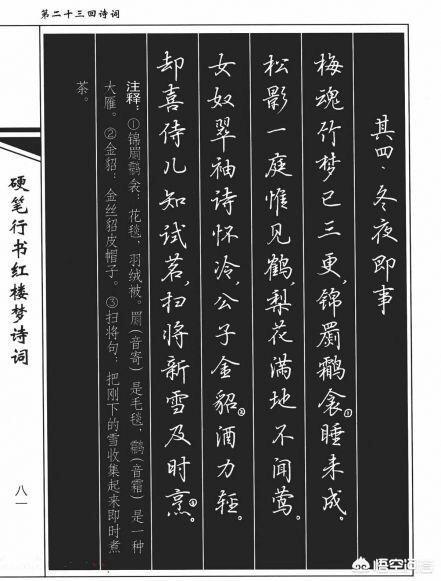 第二十三回诗词
其四·冬夜即事
梅魂竹梦已三更,锦罽鹴衾①睡未成。
松影一庭惟见鹤,梨花满地不闻莺。
女奴翠袖诗怀冷,公子金貂②酒力轻。
却喜侍儿知试茗,扫将新雪及时烹③。
注释:①锦罽鹴衾:花毯,羽绒被。罽(音寄)是毛毯,鹴(音霜)是一种
大雁。②金貂:金丝貂皮帽子。③扫将句:把刚下的雪收集起来即时煮
茶。
硬笔行书红楼梦诗词
八一
悟空问答